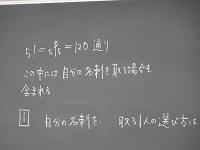 5! = ₅P₅ = 120 通り
この中には自分の名刺を取る場合も
含まれる
1 自分の名刺を、取る1人の選び方は